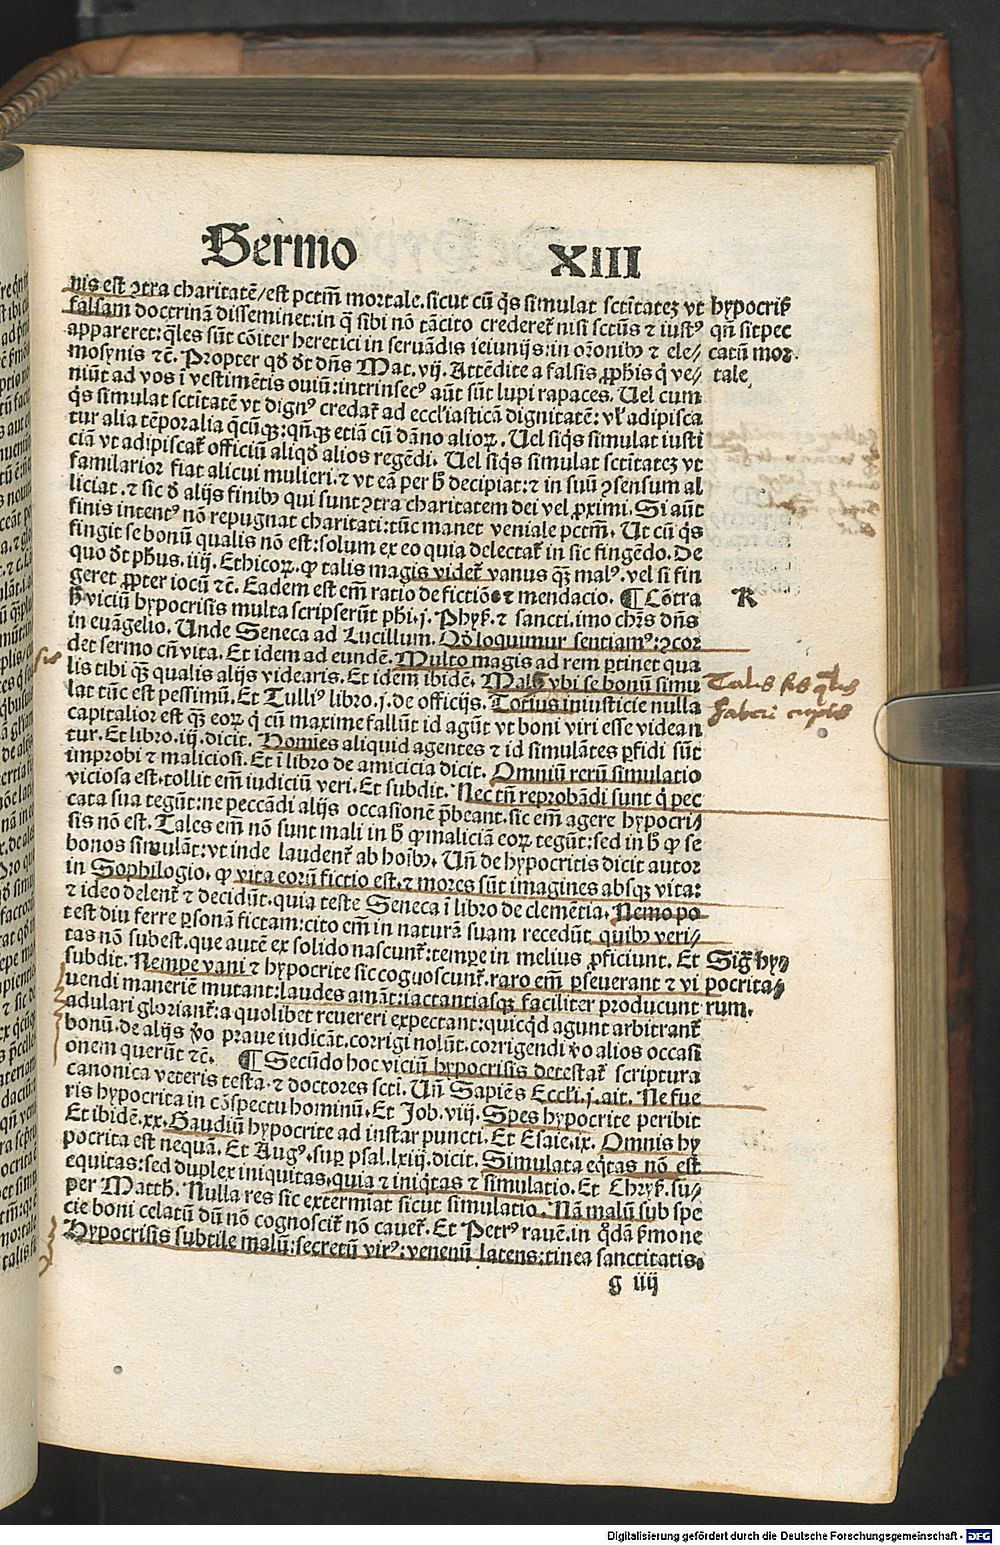 Sermo XIII
nis est ꝯtra charitatē/est pctm̄ mortale. sicut cū q̄s simulat sctītatez vt
falsam doctrinā disseminet: in q̄ sibi nō tācito crederet̄ nisi sctūs ⁊ iustꝰ
appareret: q̄les sūt cōiter heretici in seruādis ieiunijs: in orōnibꝰ ⁊ ele/
mosynis ⁊c̄. Propter qd̄ dt̄ dn̄s Mat. vij. Attēdite a falsis ꝓphis q̄ ve/
niūt ad vos ī vestimētis ouiū: intrinsecꝰ aūt sūt lupi rapaces. Uel cum
q̄s simulat sctītatē vt dignꝰ credat̄ ad eccl'iasticā dignitatē: vl' adipisca
tur alia tēporalia qcūqꝫ: qn̄qꝫ etiā cū dāno alioꝝ. Uel siq̄s simulat iusti
ciā vt adipiscat̄ officiū aliqd̄ alios regēdi. Uel siq̄s simulat sctītatez vt
familarior fiat alicui mulieri. ⁊ vt eā per h̄ decipiat: ⁊ in suū ꝯsensum al
liciat. ⁊ sic d̄ alijs finibꝰ qui sunt ꝯtra charitatem dei vel ꝓximi. Si aūt
finis intentꝰ nō repugnat charitati: tūc manet veniale pctm̄. Ut cū q̄s
fingit se bonū qualis nō est: solum ex eo quia delectat̄ in sic fingēdo. De
quo dt̄ phus. iiij. Ethicoꝝ. ꝙ talis magis videt̄ vanus qꝫ malꝰ. vel si fin
geret ꝓpter iocū ⁊c̄. Eadem est em̄ ratio de fictiōe ⁊ mendacio. ¶ Cōtra
h̄ viciū hypocrisis multa scripserūt phi. j. Phyꝭ. ⁊ sancti. imo chrs̄ dn̄s
in euāgelio. Unde Seneca ad Lucillum. Qd̄ loquimur sentiamꝰ: ꝯcor
det sermo cū vita. Et idem ad eundē. Multo magis ad rem ꝑtinet qua
lis tibi qꝫ qualis alijs videaris. Et idem ibidē. Malꝰ vbi se bonū simu
lat tūc est pessimū. Et Tulliꝰ libro. j. de officijs. Totius iniusticie nulla
capitalior est qꝫ eoꝝ q̄ cū maxime fallūt id agūt vt boni viri esse videan
tur. Et libro. iij. dicit. Homies aliquid agentes ⁊ id simulātes ꝑfidi sūt
improbi ⁊ maliciosi. Et ī libro de amicicia dicit. Omniū rerū simulatio
viciosa est. tollit em̄ iudiciū veri. Et subdit. Nec tn̄ reprobādi sunt q̄ pec
cata sua tegūt: ne peccādi alijs occasionē p̄beant. sic em̄ agere hypocri/
sis nō est. Tales em̄ nō sunt mali in h̄ ꝙ maliciā eoꝝ tegūt: sed in h̄ ꝙ se
bonos simulāt: vt inde laudent̄ ab hoībꝰ. Un̄ de hypocritis dicit autor
in Sophilogio. ꝙ vita eorū fictio est. ⁊ mores sūt imagines absqꝫ vita:
⁊ ideo delent̄ ⁊ decidūt. quia teste Seneca ī libro de clemētia. Nemo po
test diu ferre ꝑsonā fictam: cito em̄ in naturā suam recedūt quibꝰ veri/
tas nō subest. que autē ex solido nascunt̄: tempe in melius ꝓficiunt. Et
subdit. Nempe vani ⁊ hypocrite sic cognoscunt̄. raro em̄ ꝑseuerant ⁊ vi
uendi maneriē mutant: laudes amāt: iactantiasqꝫ faciliter producunt
adulari gloriant̄: a quolibet reuereri expectant: quicqd̄ agunt arbitrant̄
bonū. de alijs v̄o praue iudicāt. corrigi nolūt. corrigendi v̄o alios occasi
onem querūt ⁊c̄. ¶ Secūdo hoc viciū hypocrisis detestat̄ scriptura
canonica veteris testa. ⁊ doctores scti. Un̄ Sapiēs Eccli. j. ait. Ne fue
ris hypocrita in cōspectu hominū. Et Job. viij. Spes hypocrite peribit
Et ibidē. xx. Gaudiū hypocrite ad instar puncti. Et Esaie. ix. Omnis hy
pocrita est nequā. Et Augꝰ. suꝑ psal. lxiij. dicit. Simulata eq̄tas nō est
equitas: sed duplex iniquitas. quia ⁊ iniq̄tas ⁊ simulatio. Et Chryꝭ. su/
per Matth. Nulla res sic extermiat sicut simulatio. Nā malū sub spe
cie boni celatū dū nō cognoscit̄ nō cauet̄. Et Petrꝰ rauē. in qd̄ā p̄mone
Hypocrisis subtile malū: secretū virꝰ: venenū latens: tinea sanctitatis.
g iiij
hypocrisꝭ
qn̄ sit pec
catū mor.
tale
K
Talis sis q̄lis
haberi cupis
Siḡ hy/
pocrita/
rum.
sis
Digitalisierung gefördert durch die Deutsche Forschungsgemeinschaft - DFG